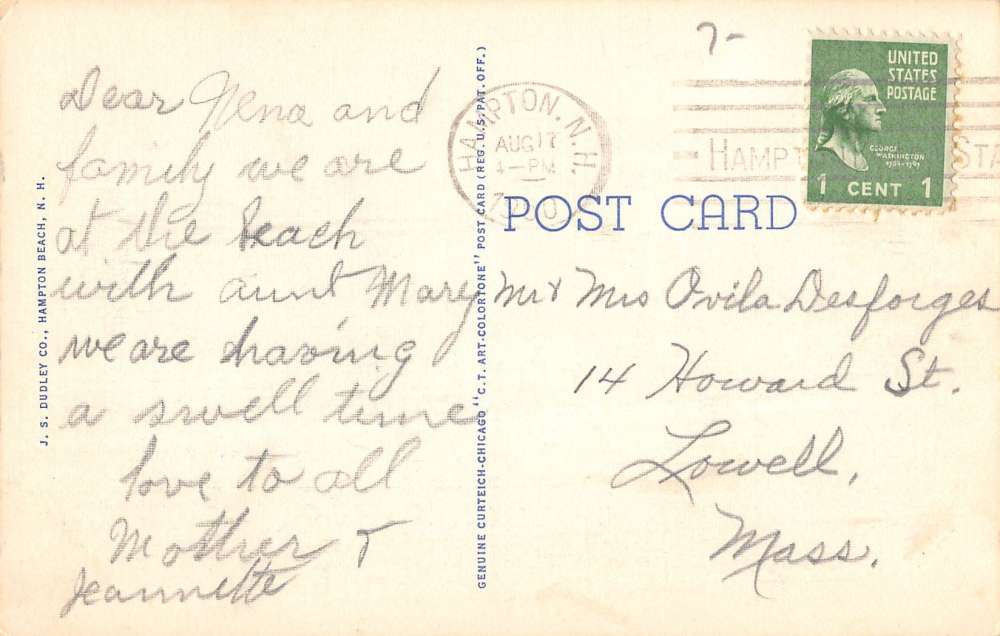 Dear Nena and
family we are
at the Beach
with aunt Mary
we are having
a swell time
love to all
Mother &
Jeannette
J. S. DUDLEY CO., HAMPTON BEACH, N. H.
GENUINE CURTEICH-CHICAGO "C.T. ART-COLORTONE" POST CARD (REG. U.S. PAT. OFF.)
7-
HAMPTON, N.H.
AUG 17
4-PM
HAMPT
STA
UNITED
STATES
POSTAGE
GEORGE
WASHINGTON
1789-1797
1 CENT 1
POST CARD
Mr & Mrs Ovila Desforges
14 Howard St.
Lowell,
Mass.